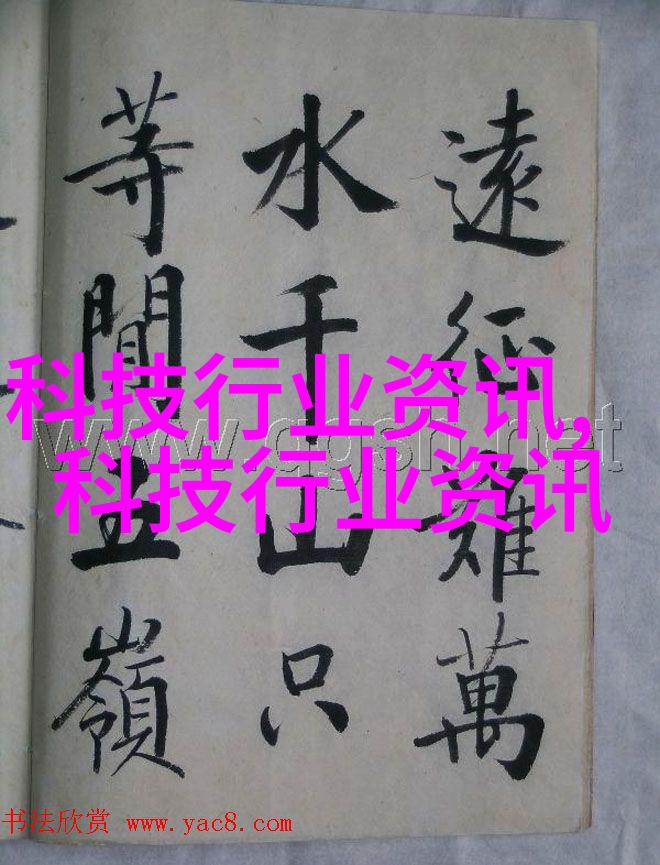 遠征難萬
水千山只
等間五嶺
科技行业资讯,
科技行业资讯
书法欣赏 www.yac8.com